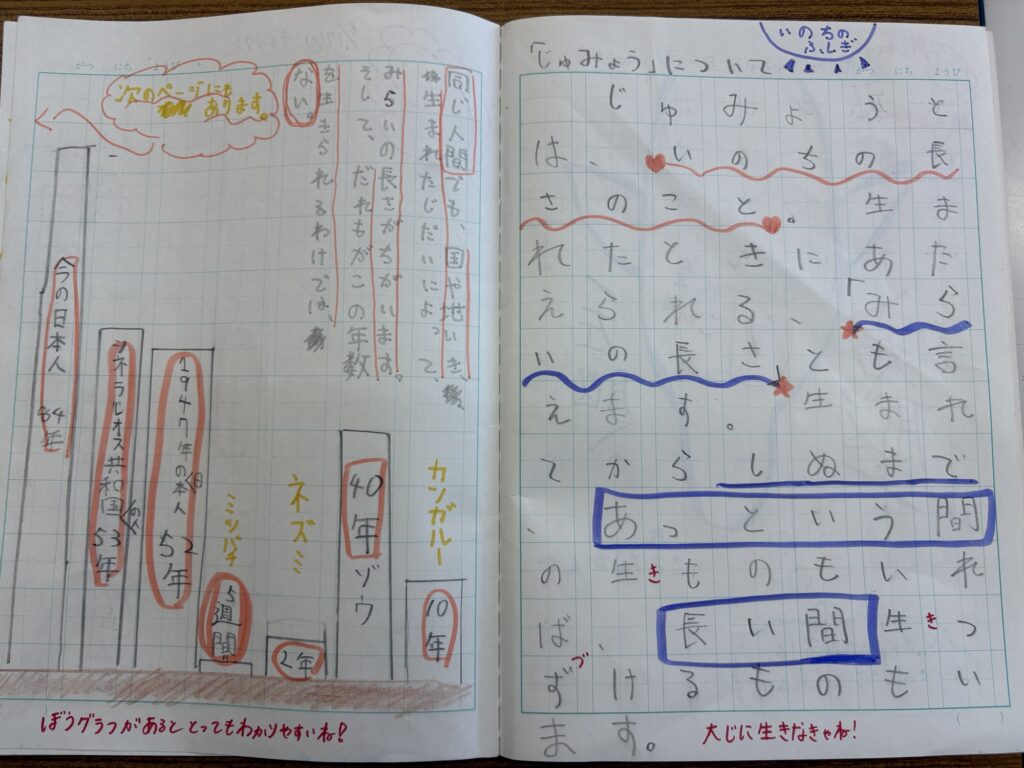 いのちの
ふしぎ
「じゅみょう」について
がつ にち ようび
じゅみょうと
は、いのちの長
さのこと。生ま
れたときにあた
えられる、「みら
いの長さ」とも言
えます。生まれ
てからしぬまで
、あっという間
の生きものもいれ
ば、長い間生きつ
ずけるものもい
ます。
き
き
づ
大じに生きなきゃね!
がつ にち ようび
同じ人間でも、国や地いき、
生まれたじだいによって、
みらいの長さがちがいます。
そして、だれもがこの年数
を生きられるわけでは、
ない。
次のページにも
あります。
カンガルー
10年
40年
ゾウ
ネズミ
2年
ミツバチ
5週間
1947年の日本人
52年
シネラレオス共和国の人
53年
今の日本人
84年
ぼうグラフがあるととってもわかりやすいね!